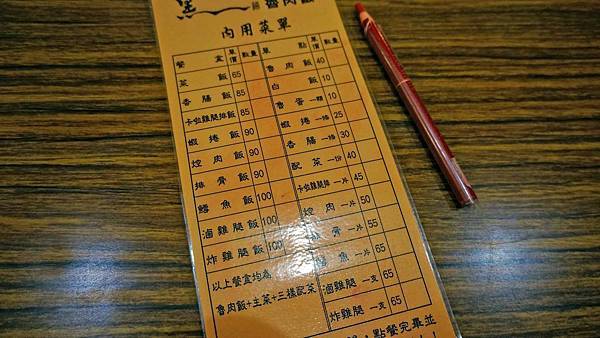 魯肉飯
內用菜單
餐盒 單價 數量 單點 單價 數量
菜飯 65 魯肉飯 40
香腸飯 85 白飯 10
卡啦雞腿排飯 85 魯蛋 一顆 10
蝦捲飯 90 蝦捲 一條 25
焢肉飯 90 香腸 一條 30
排骨飯 90 配菜 一份 40
鱈魚飯 100 卡啦雞腿排 一片 45
滷雞腿飯 100 焢肉 一片 50
炸雞腿飯 100 排骨 一片 55
以上餐盒均為 鱈魚 一片 65
魯肉飯+主菜+三樣配菜 滷雞腿 一支 65
炸雞腿 一支 65
點餐完畢並